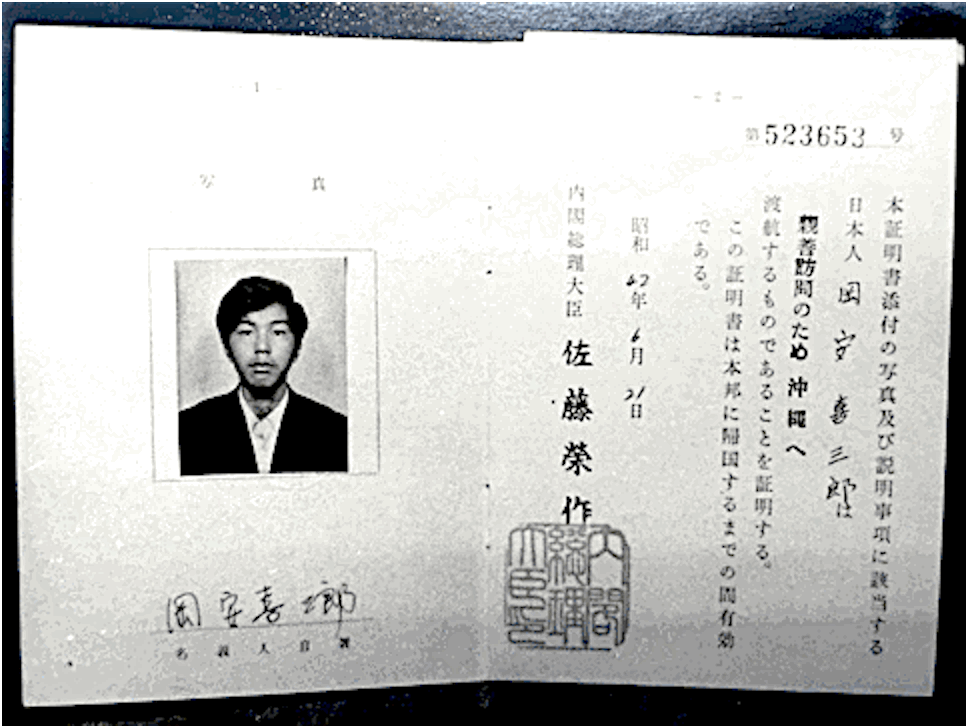 - 1 -
写真
岡安喜三郎
名義人自署
- 2 -
第523653号
本証明書添付の写真及び説明事項に該当する
日本人 岡安喜三郎は
親善訪問のため 沖縄へ
渡航するものであることを証明する。
この証明書は本邦に帰国するまでの間有効
である。
昭和42年6月21日
内閣総理大臣 佐藤榮作
内閣總理大臣印